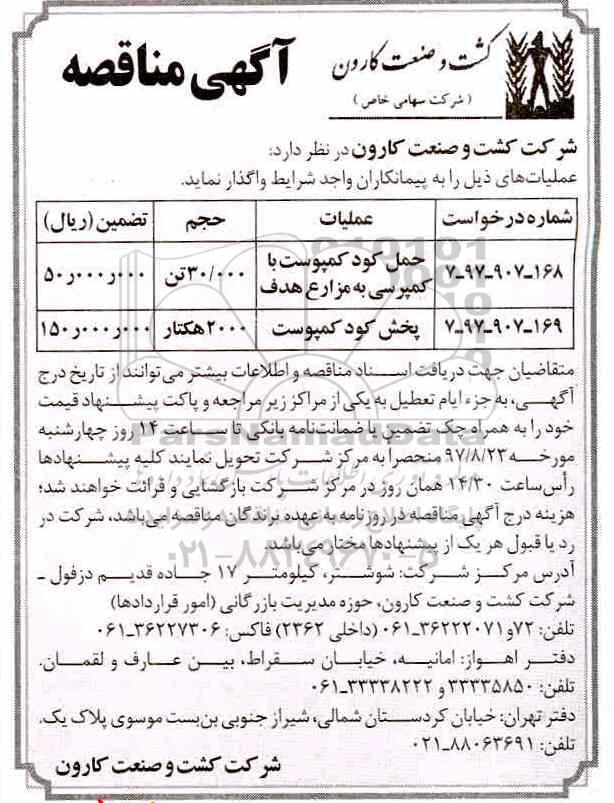 کشت و صنعت کارون
( شرکت سهامی خاص )
آگهی مناقصه
شرکت کشت و صنعت کارون در نظر دارد:
عملیات‌های ذیل را به پیمانکاران واجد شرایط واگذار نماید.
شماره درخواست | عملیات | حجم | تضمین (ریال)
۷ـ۹۷ـ۹۰۷ـ۱۶۸ | حمل کود کمپوست با کمپرسی به مزارع هدف | ۳۰/۰۰۰ تن | ۵۰ر۰۰۰ر۰۰۰
۷ـ۹۷ـ۹۰۷ـ۱۶۹ | پخش کود کمپوست | ۲۰۰۰ هکتار | ۱۵۰ر۰۰۰ر۰۰۰
متقاضیان جهت دریافت اسناد مناقصه و اطلاعات بیشتر می‌توانند از تاریخ درج
آگهی، به جزء ایام تعطیل به یکی از مراکز زیر مراجعه و پاکت پیشنهاد قیمت
خود را به همراه چک تضمین یا ضمانت‌نامه بانکی تا ساعت ۱۴ روز چهارشنبه
مورخه ۹۷/۸/۲۳ منحصرا به مرکز شرکت تحویل نمایند کلیه پیشنهادها
رأس ساعت ۱۴/۳۰ همان روز در مرکز شرکت بازگشایی و قرائت خواهند شد؛
هزینه درج آگهی مناقصه در روزنامه به عهده برندگان مناقصه می‌باشد، شرکت در
رد یا قبول هر یک از پیشنهادها مختار می‌باشد.
آدرس مرکز شرکت: شوشتر، کیلومتر ۱۷ جاده قدیم دزفول ـ
شرکت کشت و صنعت کارون، حوزه مدیریت بازرگانی (امور قراردادها)
تلفن: ۷۲ و ۳۶۲۲۲۰۷۱ـ۰۶۱ (داخلی ۲۳۶۲) فاکس: ۳۶۲۲۷۳۰۶ـ۰۶۱
دفتر اهواز: امانیه، خیابان سقراط، بین عارف و لقمان.
تلفن: ۳۳۳۳۵۸۵۰ و ۳۳۳۳۸۲۲۲ـ۰۶۱
دفتر تهران: خیابان کردستان شمالی، شیراز جنوبی بن‌بست موسوی پلاک یک.
تلفن: ۸۸۰۶۳۶۹۱ـ۰۲۱
شرکت کشت و صنعت کارون
ParsNamadData
۰۲۱-۸۸۳۴۹۶۷۰-۵